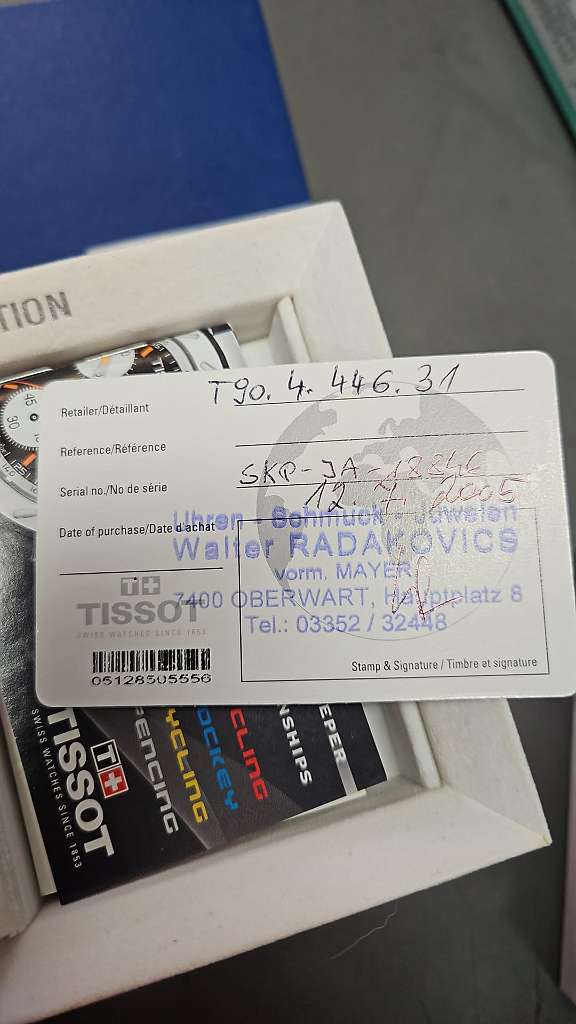 TION
45
30
Retailer/Détaillant
T90. 4. 446. 31
Reference/Référence
Serial no./No de série
SKP-JA-18846
Date of purchase/Date d'achat
12. 7. 2005
Uhren - Schmuck - Juwelen
Walter RADAKOVICS
vorm. MAYER
7400 OBERWART, Hauptplatz 8
Tel.: 03352 / 32448
TISSOT
SWISS WATCHES SINCE 1853
Stamp & Signature / Timbre et signature
05128505556
TISSOT
SWISS WATCHES SINCE 1853
FENCING
YCLING
OCKEY
CLING
NSHIPS
EPER